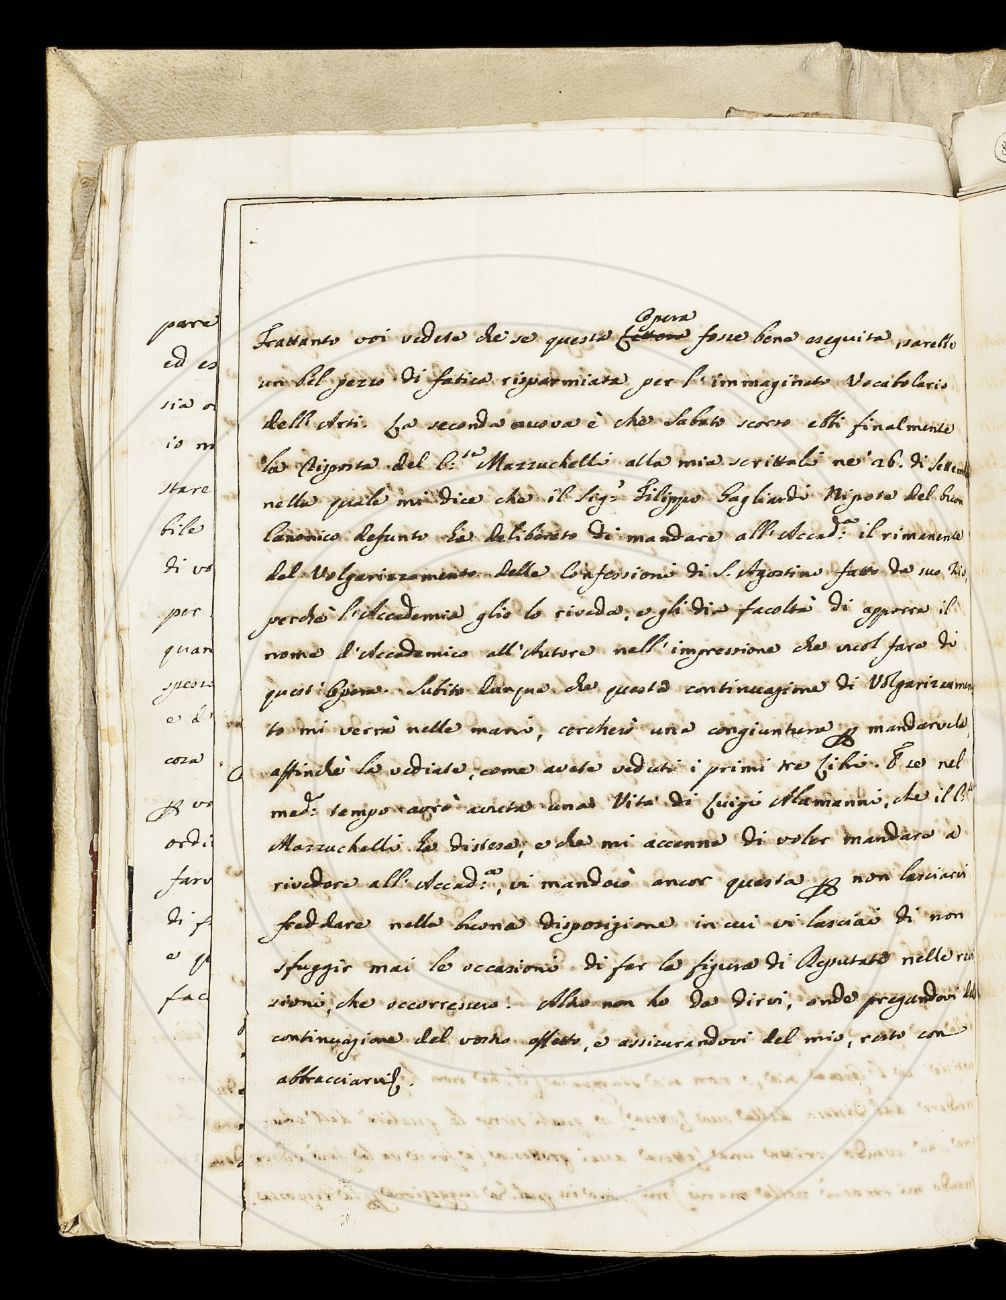 Opera
Frattanto voi vedete che se questa Lettera fosse bene eseguita, sarette
un bel pezzo di fatica risparmiata per l'immaginato Vocabolario
dell'Arti. La seconda nuova è che Sabato scorso ebbi finalmente
la Risposta del C:te Mazzuchelli alla mia scrittali ne' 26. di Settemb
nella quale mi dice che il Sig.r Filippo Gagliardi Nipote del buon
Canonico defunto ha deliberato di mandare all'Accad:a il rimanente
del Volgarizzamento delle Confessioni di S. Agostino fatto da suo Zio,
perchè l'Accademia glie lo riveda, e gli dia facoltà di apporre il
nome d'Accademico all'Autore nell'impressione che vuol fare di
quest'Opera. Subito dunque che questa continuazione di Volgarizzamen
to mi verrà nelle mani, cercherò una congiuntura per mandarvela,
affinchè la vediate, come avete veduti i primi tre Libri. E se nel
med:o tempo avrò avuta una Vita di Luigi Alamanni, che il C:te
Mazzuchelli ha distesa, e che mi accenna di voler mandare a
rivedere all'Accad:a, vi manderò ancor questa per non lasciarvi
freddare nella buona disposizione in cui vi lasciai di non
sfuggir mai le occasioni di far la figura di Deputato nelle revi
sioni, che occorressero. Altro non ho da dirvi, onde pregandovi della
continuazione del vostro affetto, e assicurandovi del mio, resto con
abbracciarvi.
pare
ed es
sia
io m
stare
bile
di vo
per
quan
spesso
e d
cosa
per vo
ordi
farv
di f
e
fac